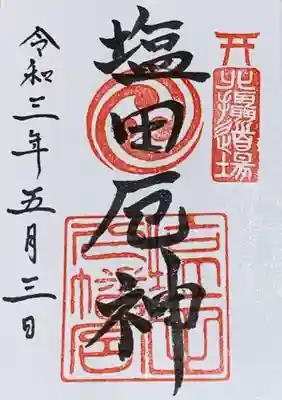 北攝道場
塩田厄神
令和三年五月三日